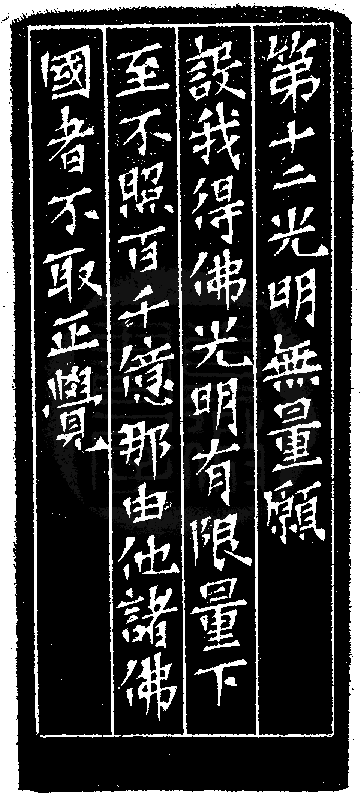 第十二光明無量願
設我得佛光明有限量下
至不照百千億那由他諸佛
國者不取正覺